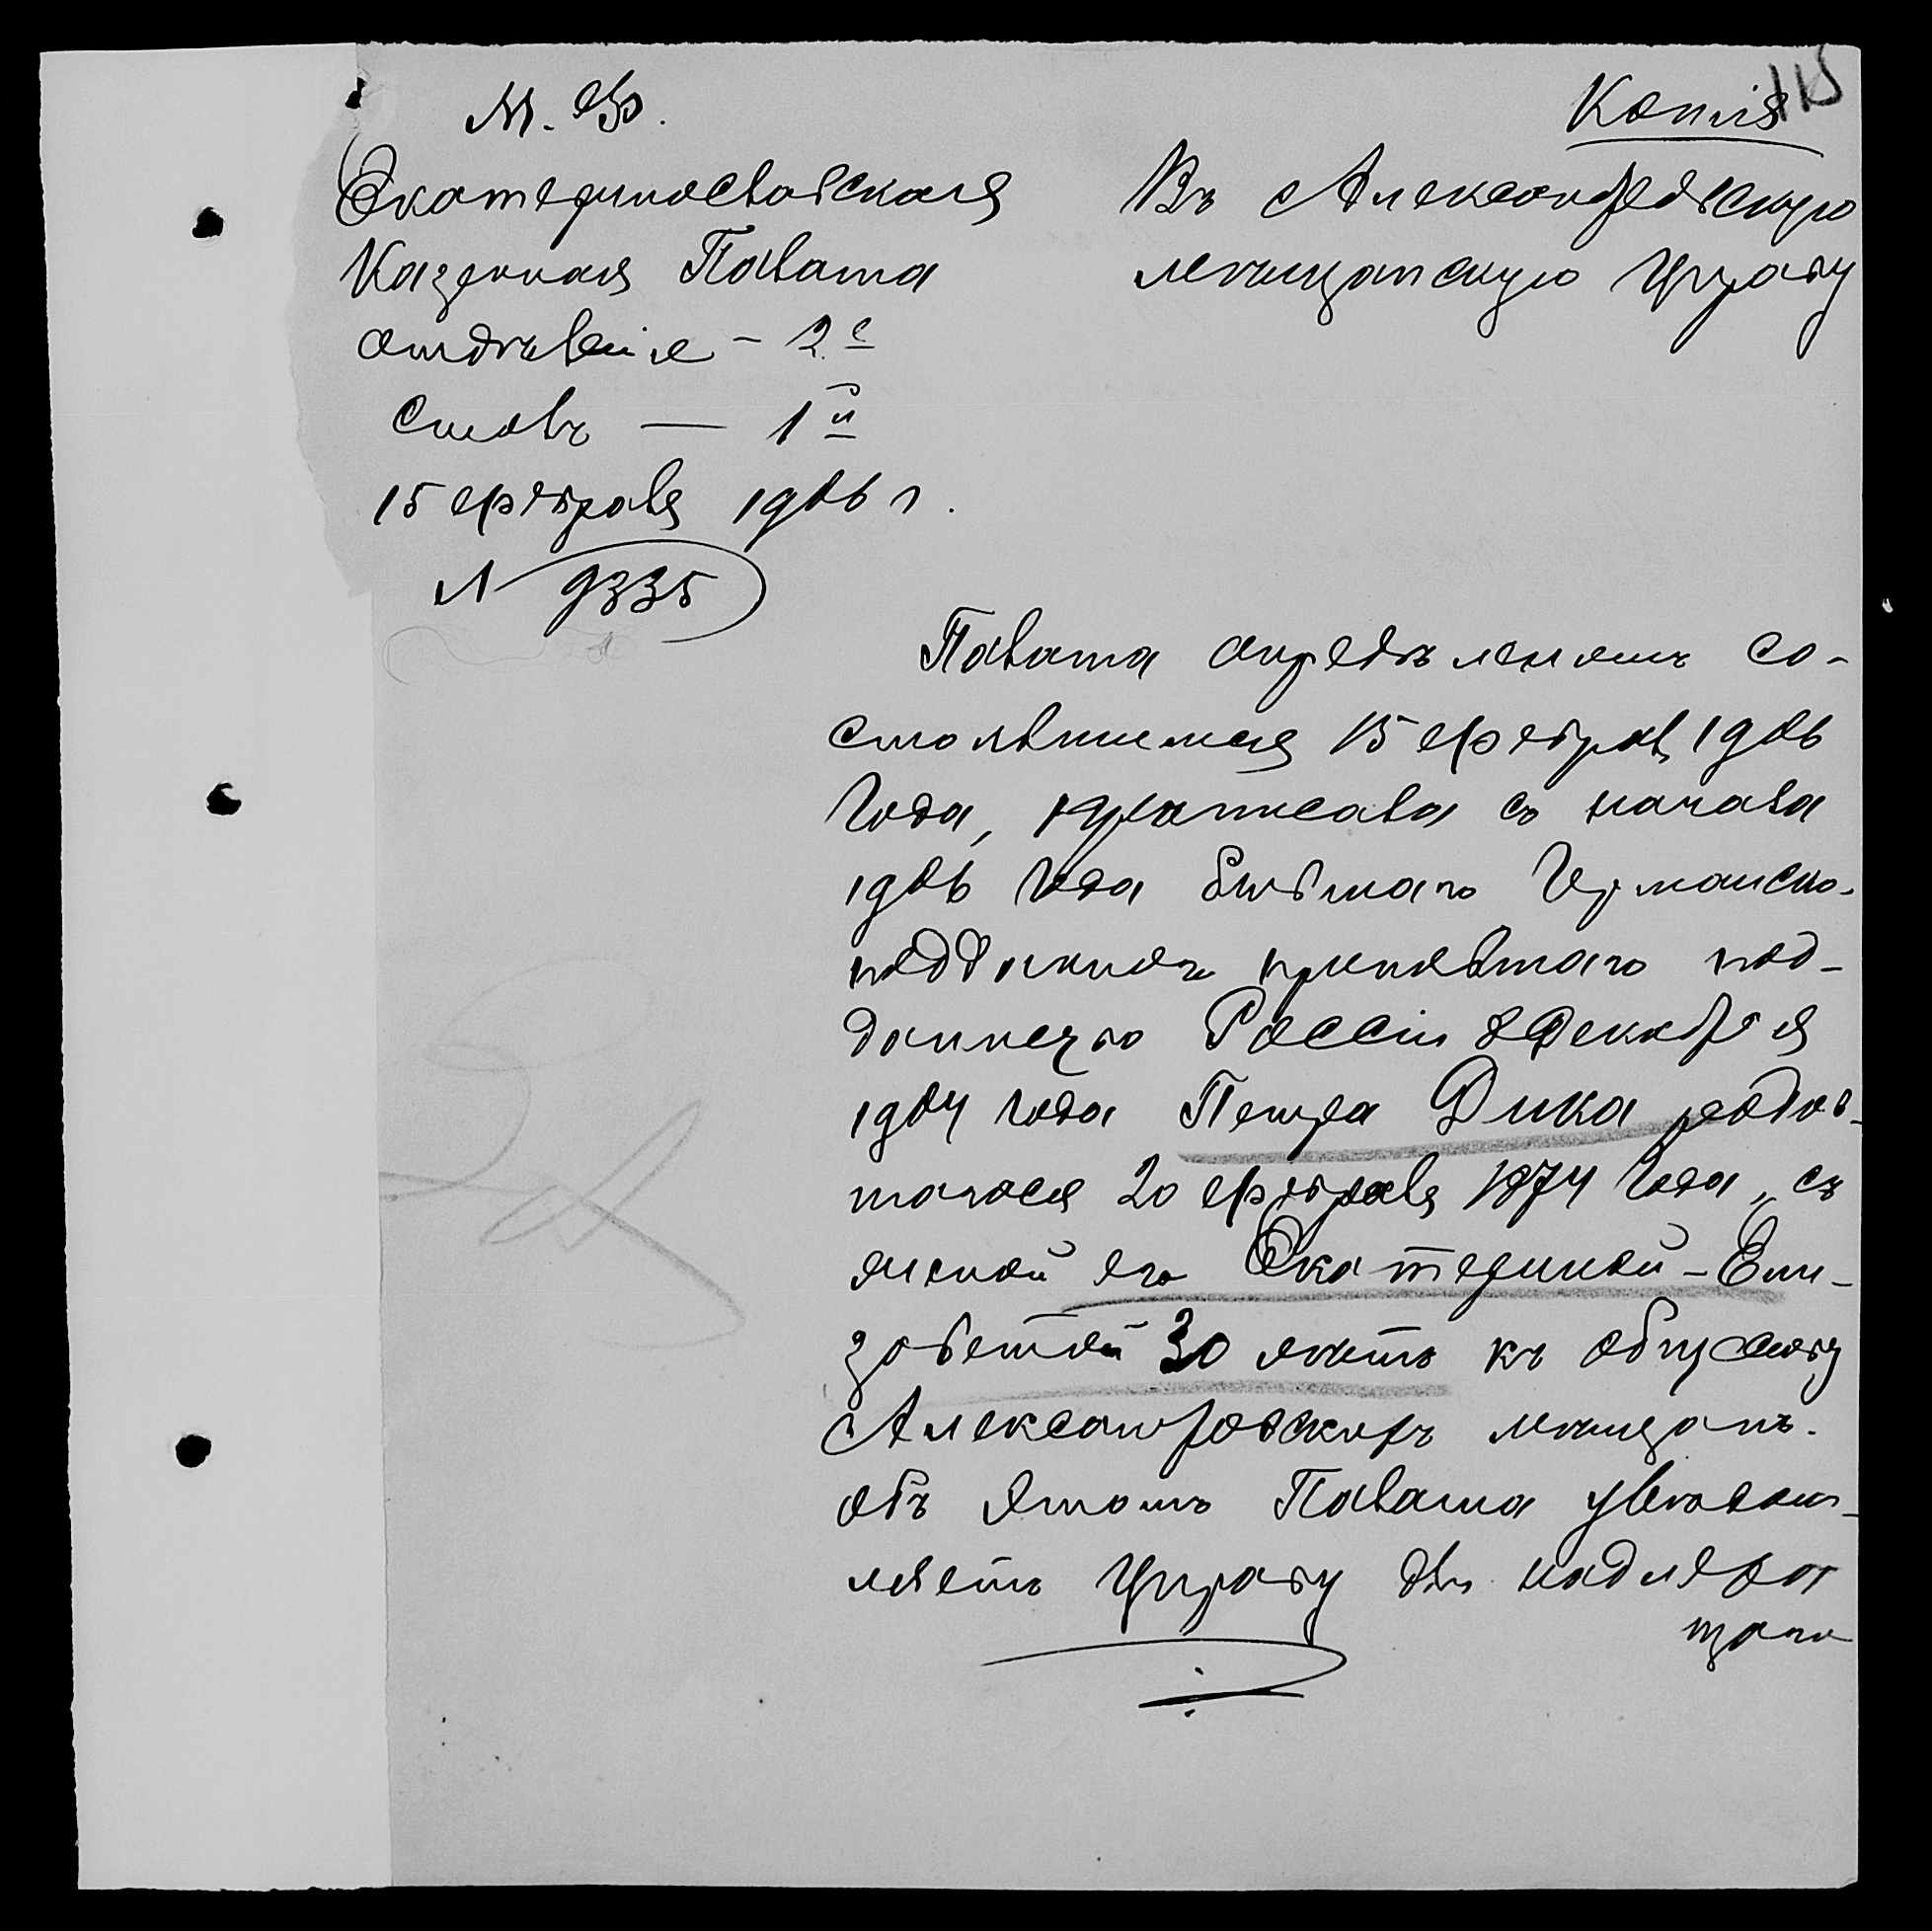 115
М. Ф.
Копія
Екатеринославская
Казенная Палата
отдѣленіе - 2е
столъ — 1й
15 февраля 1906 г.
N 9335
Въ Александровскую
мѣщанскую Управу
Палата опредѣленіемъ со-
стоявшимся 15 февраля 1906
года, причислила съ начала
1906 года бывшаго Германско-
подданнаго принявшаго под-
данность Россіи 8 Декабря
1904 года Петра Дика родив-
шагося 20 февраля 1874 года, съ
женой его Екатериной-Ели-
заветой 30 лѣтъ къ обществу
Александровскихъ мѣщанъ.
объ этомъ Палата увѣдом-
ляетъ Управу для надлежа
щаго